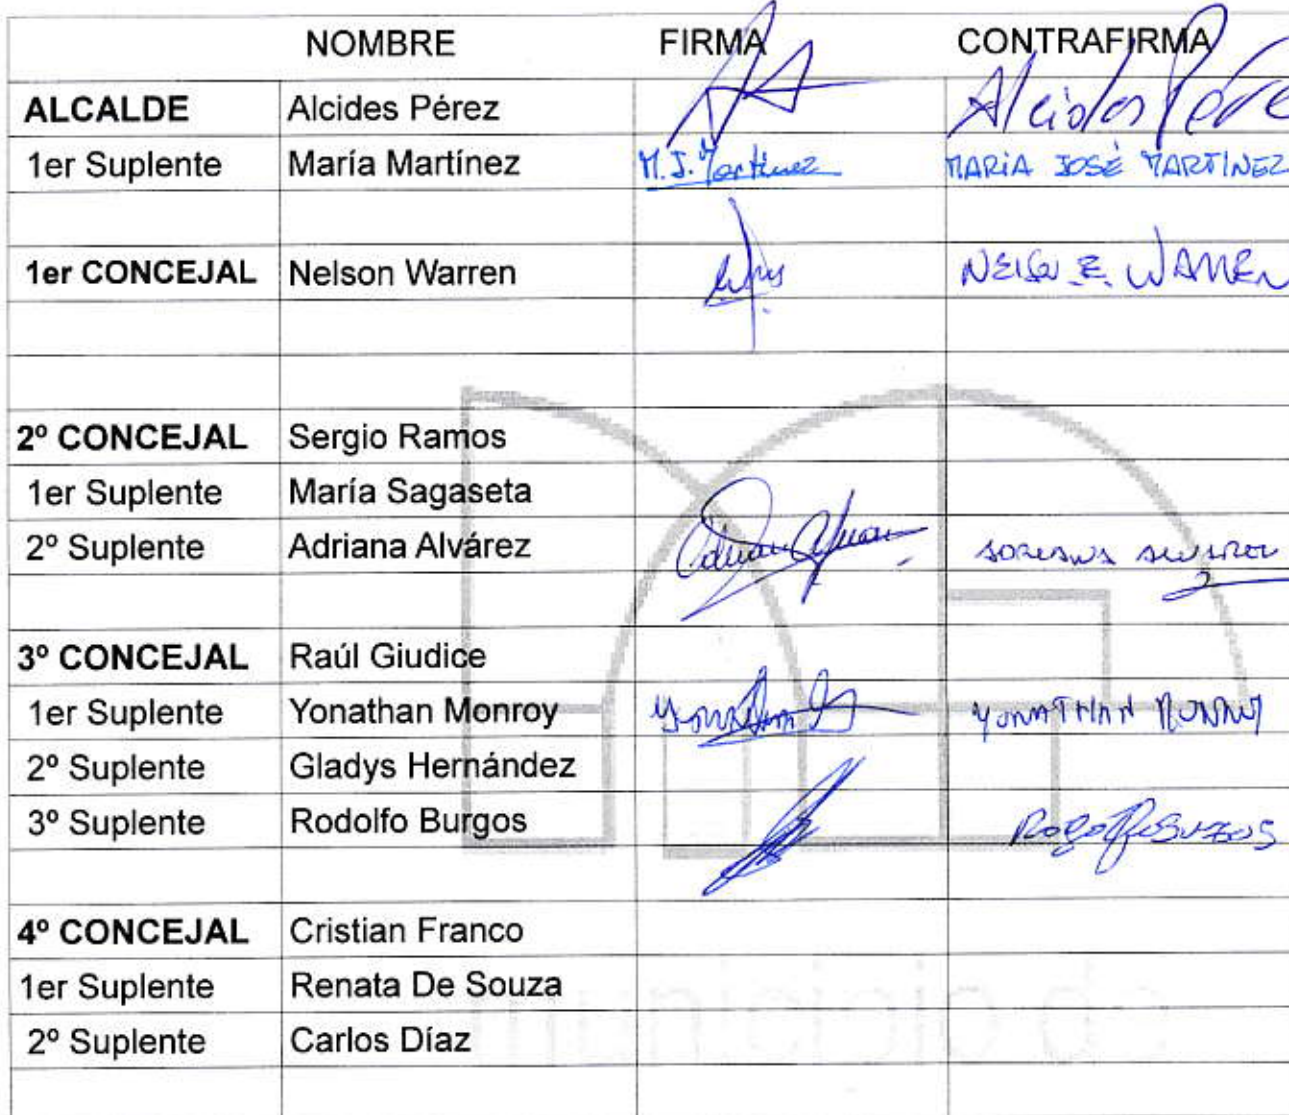 NOMBRE FIRMA CONTRAFIRMA
ALCALDE Alcides Pérez Alcides Pérez
1er Suplente María Martínez M. J. Martínez MARÍA JOSÉ MARTÍNEZ
1er CONCEJAL Nelson Warren NELSON E. WARREN
2º CONCEJAL Sergio Ramos
1er Suplente María Sagaseta
2º Suplente Adriana Alvárez ADRIANA ALVAREZ
3º CONCEJAL Raúl Giudice
1er Suplente Yonathan Monroy Yonathan YONATHAN MONROY
2º Suplente Gladys Hernández
3º Suplente Rodolfo Burgos Rodolfo BURGOS
4º CONCEJAL Cristian Franco
1er Suplente Renata De Souza
municipio
2º Suplente Carlos Díaz